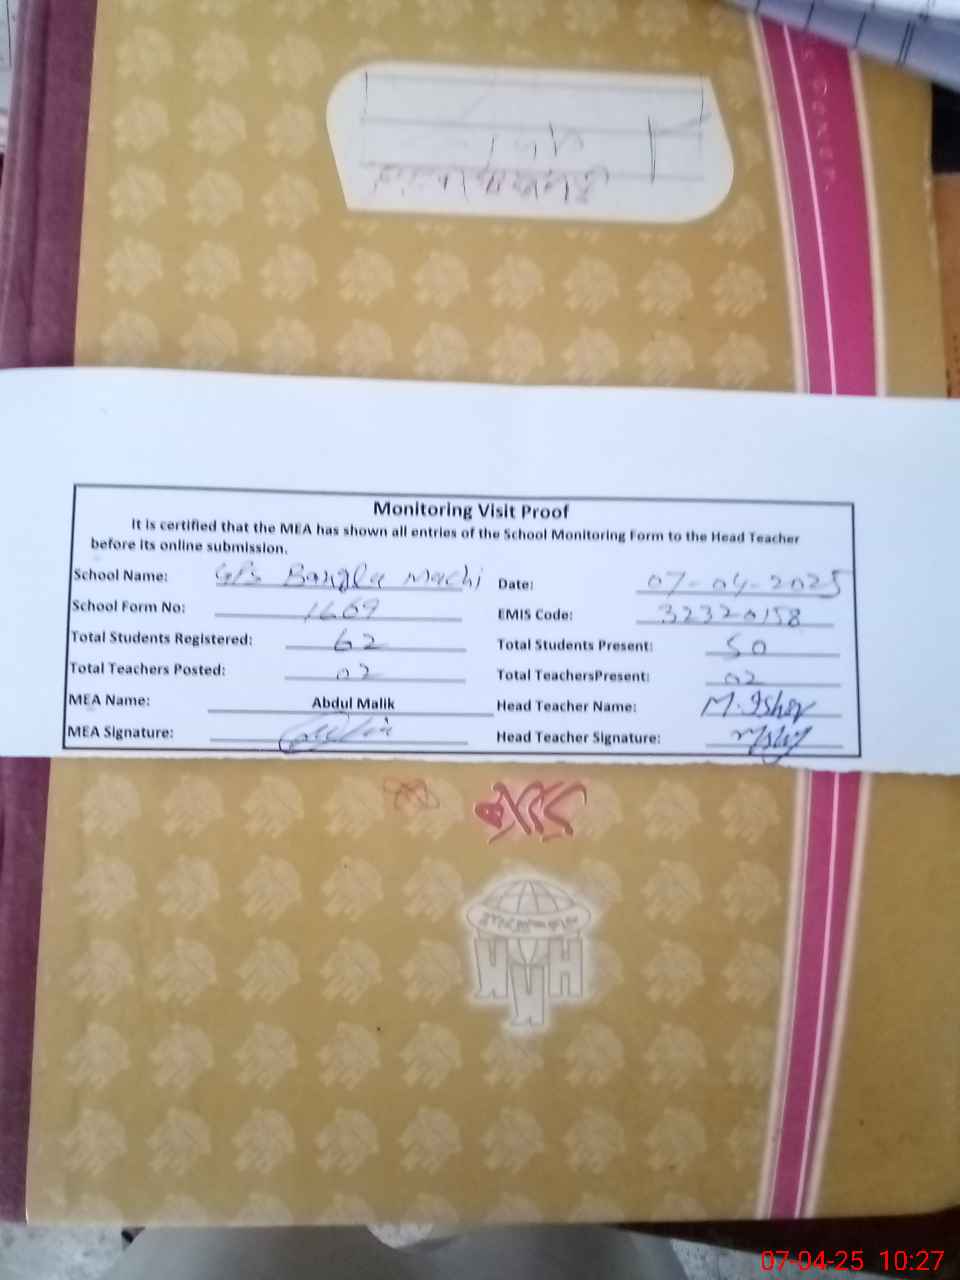 Monitoring Visit Proof
It is certified that the MEA has shown all entries of the School Monitoring Form to the Head Teacher
before its online submission.
School Name: GPS Bangla Machi Date: 07-04-2025
School Form No: 1669 EMIS Code: 32320158
Total Students Registered: 62 Total Students Present: 50
Total Teachers Posted: 02 Total TeachersPresent: 02
MEA Name: Abdul Malik Head Teacher Name: M. Ishaq
MEA Signature: Head Teacher Signature:
07-04-25 10:27